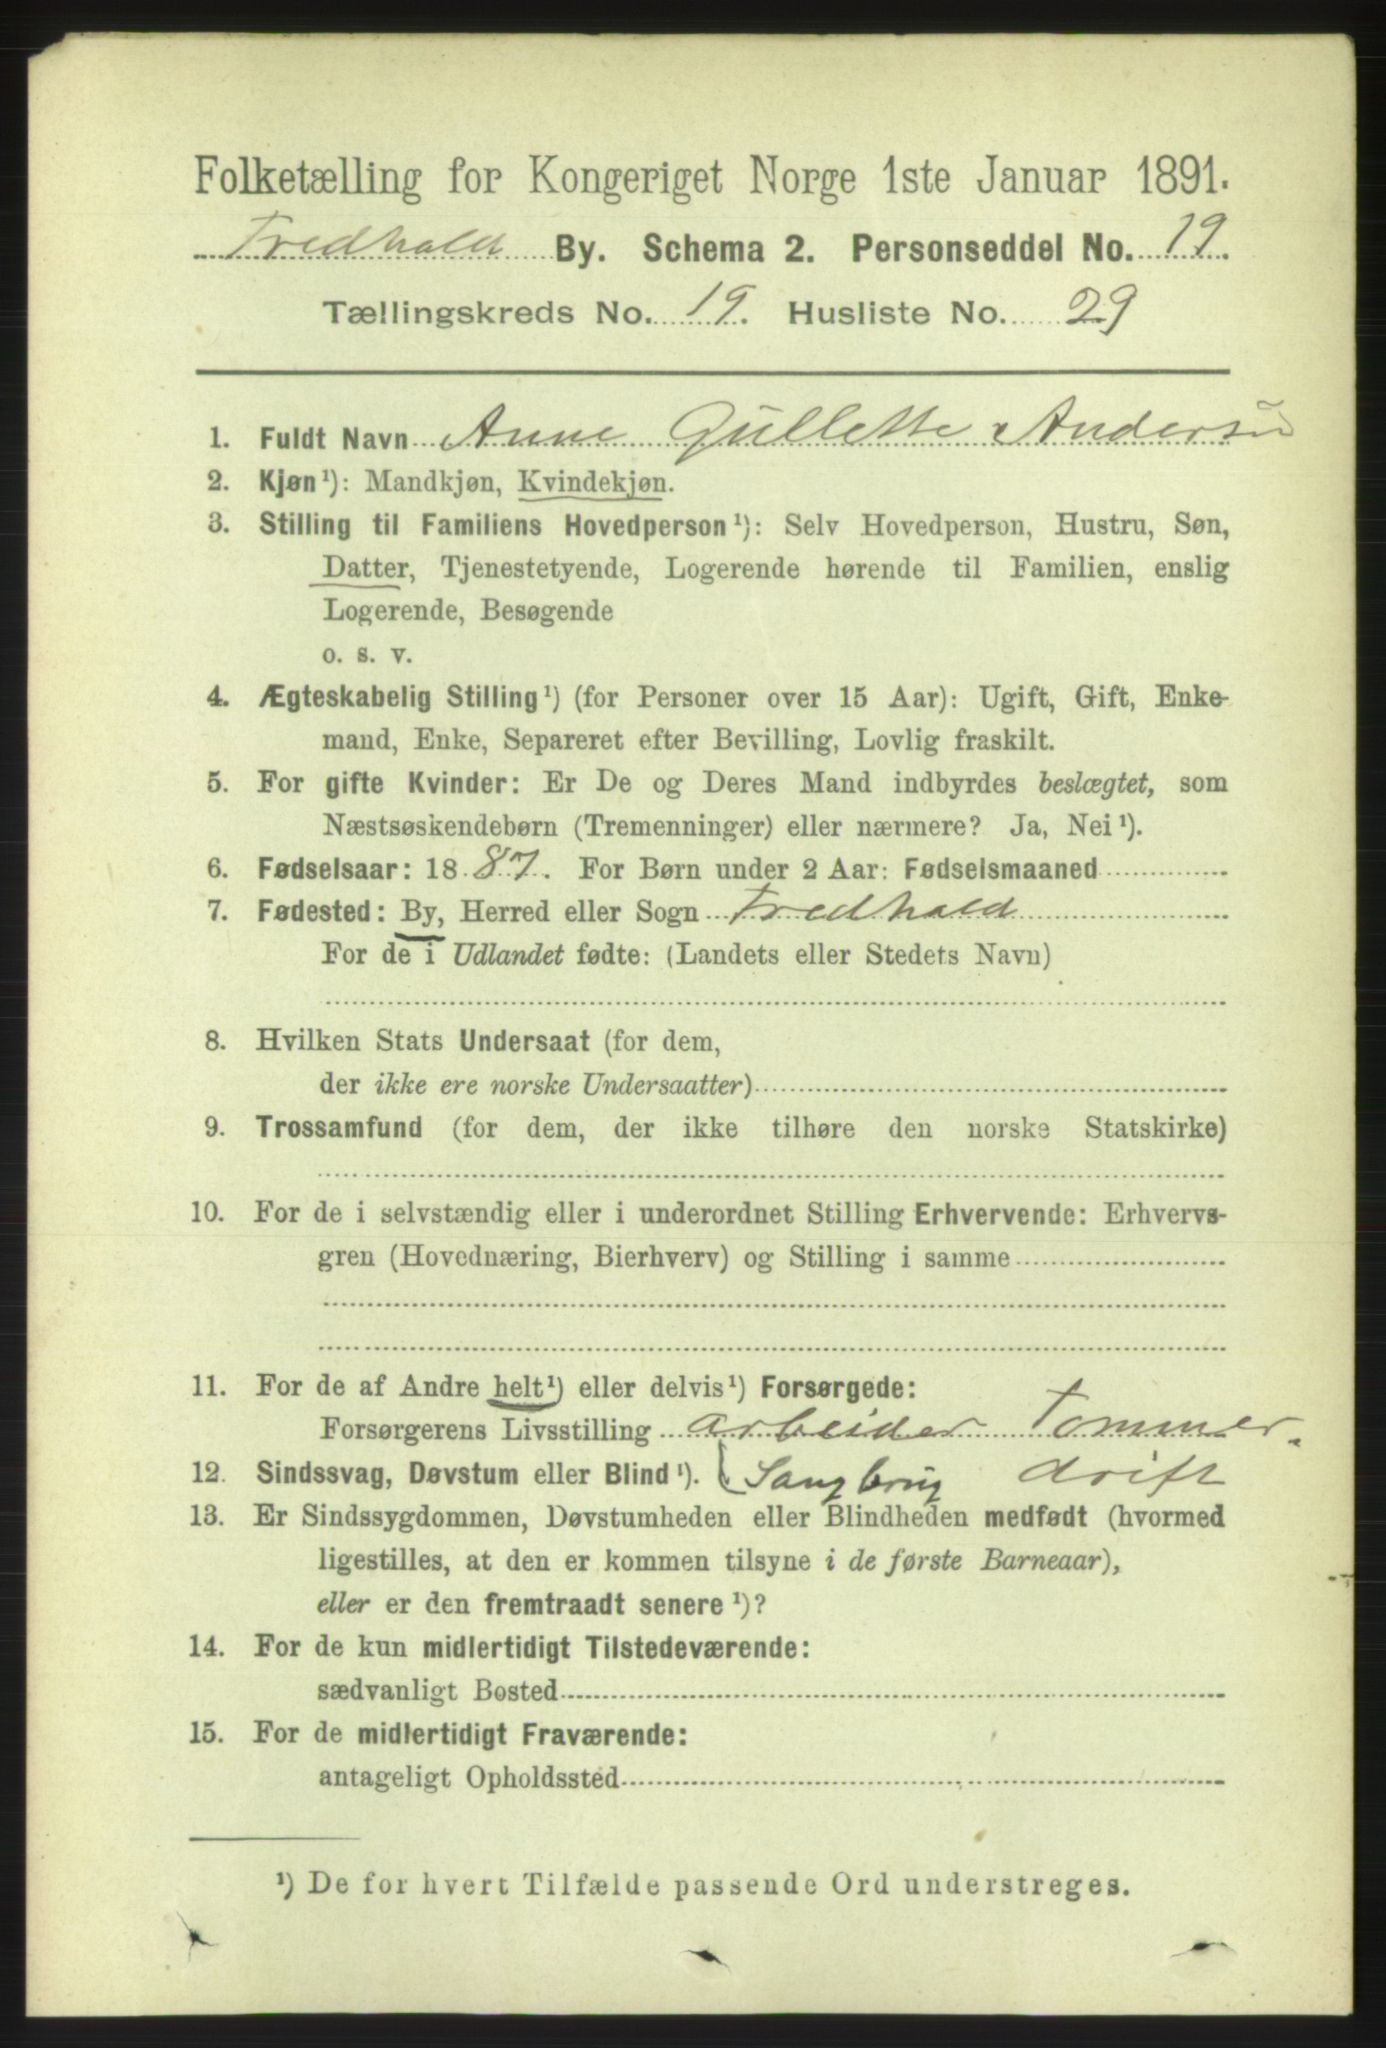 Folketælling for Kongeriget Norge 1ste Januar 1891.
Fredhald By. Schema 2. Personseddel No. 19.
Tællingskreds No. 19. Husliste No. 29
1. Fuldt Navn Anne Gullette Andersen
2. Kjøn¹): Mandkjøn, Kvindekjøn.
3. Stilling til Familiens Hovedperson¹): Selv Hovedperson, Hustru, Søn,
Datter, Tjenestetyende, Logerende hørende til Familien, enslig
Logerende, Besøgende
o. s. v.
4. Ægteskabelig Stilling¹) (for Personer over 15 Aar): Ugift, Gift, Enke-
mand, Enke, Separeret efter Bevilling, Lovlig fraskilt.
5. For gifte Kvinder: Er De og Deres Mand indbyrdes beslægtet, som
Næstsøskendebørn (Tremenninger) eller nærmere? Ja, Nei¹).
6. Fødselsaar: 1887. For Børn under 2 Aar: Fødselsmaaned
7. Fødested: By, Herred eller Sogn Fredhald
For de i Udlandet fødte: (Landets eller Stedets Navn)
8. Hvilken Stats Undersaat (for dem,
der ikke ere norske Undersaatter)
9. Trossamfund (for dem, der ikke tilhøre den norske Statskirke)
10. For de i selvstændig eller i underordnet Stilling Erhvervende: Erhvervs-
gren (Hovednæring, Bierhverv) og Stilling i samme
11. For de af Andre helt¹) eller delvis¹) Forsørgede:
Forsørgerens Livsstilling arbeider Tømmer-
12. Sindssvag, Døvstum eller Blind¹). drift
13. Er Sindssygdommen, Døvstumheden eller Blindheden medfødt (hvormed
ligestilles, at den er kommen tilsyne i de første Barneaar),
eller er den fremtraadt senere¹)?
14. For de kun midlertidigt Tilstedeværende:
sædvanligt Bosted
15. For de midlertidigt Fraværende:
antageligt Opholdssted
¹) De for hvert Tilfælde passende Ord understreges.